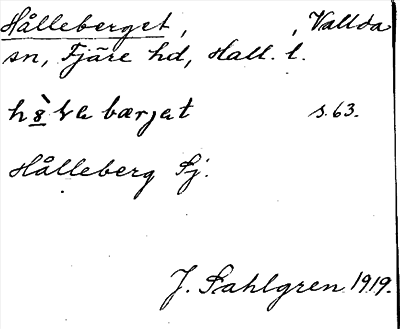 Hålleberget, , Vallda
sn, Fjäre hd, Hall. l.
bærjet s. 63.
Hålleberg Sj.
J. Sahlgren 1919.